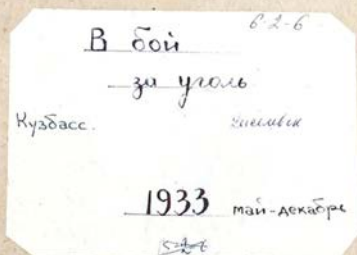 6-2-6
В бой
за уголь
Кузбасс.
1933 май-декабрь